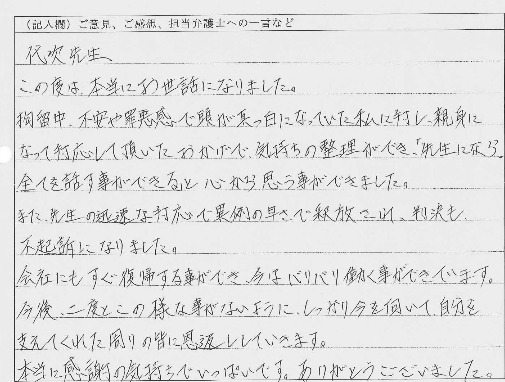 (記入欄)ご意見、ご感想、担当弁護士への一言など
代次先生、
この度は、本当にお世話になりました。
拘留中、不安や罪悪感で頭が真っ白になっていた私に対し、親身に
なって対応して頂いたおかげで、気持ちの整理ができ、「先生になら
全てを話す事ができる」と心から思う事ができました。
また、先生の迅速な対応で異例の早さで釈放され、判決も
不起訴になりました。
会社にもすぐ復帰する事ができ、今はバリバリ働く事ができています。
今後、二度とこの様な事がないように、しっかり今を向いて自分を
支えてくれた周りの皆に恩返ししていきます。
本当に感謝の気持ちでいっぱいです。ありがとうございました。